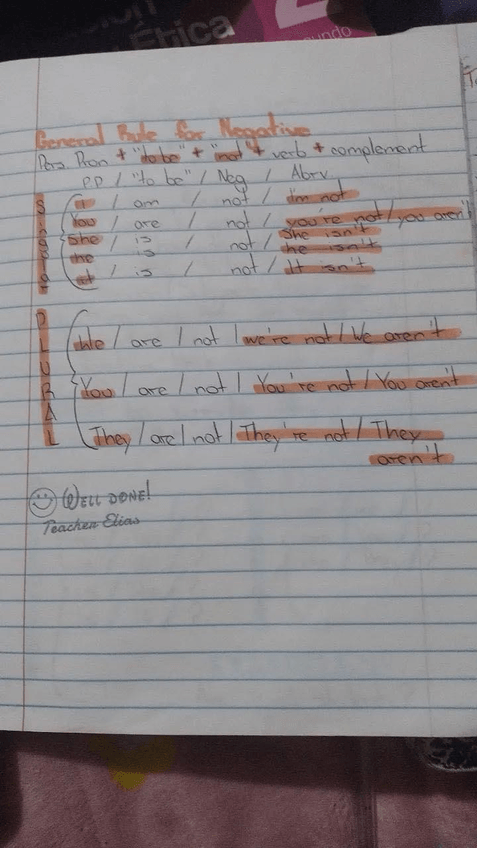 Ética
undo
General Rule for Negative
Pers Pron + "to be" + "not" + verb + complement
PP / "to be" / Neg / Abrv
Singular
I / am / not / I'm not
You / are / not / you're not / you aren't
She / is / not / She isn't
He / is / not / he isn't
It / is / not / It isn't
PLURAL
We / are / not / we're not / We aren't
You / are / not / You're not / You aren't
They / are / not / They're not / They
aren't
WELL DONE!
Teacher Elias